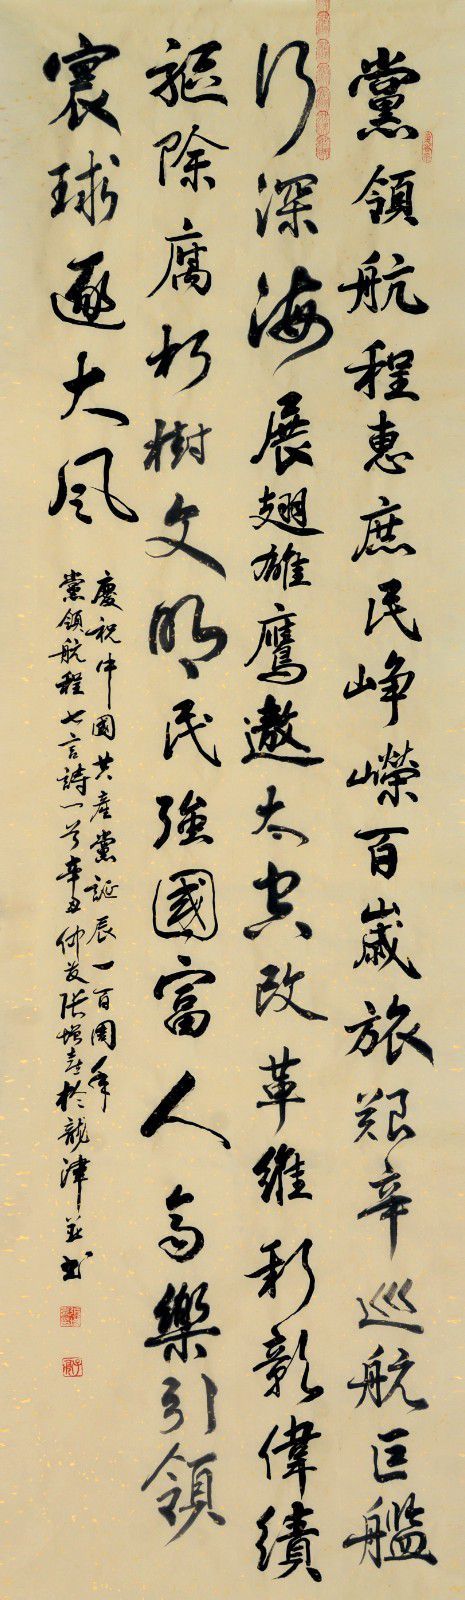 黨領航程惠庶民崢嶸百歲旅艱辛巡航巨艦
行深海展翅雄鷹遨太空改革維新彰偉績
驅除腐朽樹文明民強國富人高樂引領
寰球逐大风
慶祝中國共產黨誕辰一百周年
黨領航程七言詩一首辛丑仲夏張增喜於龍津並书